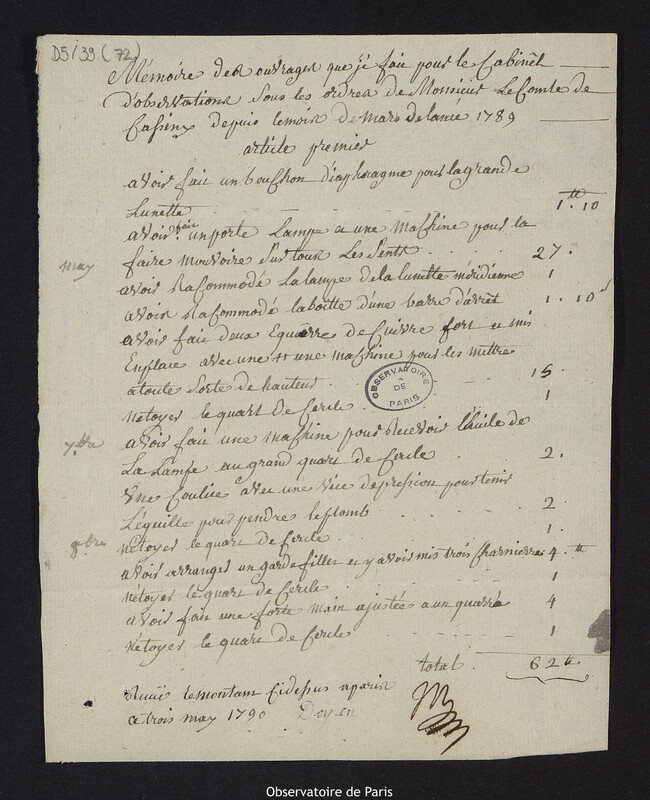 D5/39 (72)
Mémoire des ouvrages que jé fait pour le Cabinèt
d'observations sous les ordres de Monsieur Le Comte de
Cassiny depuis le mois de Mars de lanée 1789
article premier
avoir fait un bouchon diaphragme pour la grande
Lunette 1tt. 10
avoir fait un porte Lampe a une machine pour la
faire mouvoire sur tous Les sents 27.
may avoir Racommodé La lampe de la lunette méridienne 1
avoir Racommodé la boitte d'une barre d'arrêt 1. 10s
avoir fait deux Equairre de Cuivre fort et mis
En place avec une tt une machine pour les mettre
a toute sorte de hauteur 15.
OBSERVATOIRE DE PARIS
netoyer le quart de Cercle 1
7bre avoir fait une machine pour Recevoir l'huile de
La Lampe au grand quart de Cercle 2.
une Coulice avec une vice de pression pour tenir
Léguille pour pendre le plomb 2
8bre netoyer le quart de Cercle 1.
avoir arranger un garde filler et y avoir mis trois Charnierre 4.tt
netoyer le quart de Cercle 1
avoir fait une forte main ajustée a un quarré 4
netoyer le quart de Cercle 1
total 62tt.
Reçu le montant Cidessus a paris
ce trois may 1790 Doyen
Observatoire de Paris